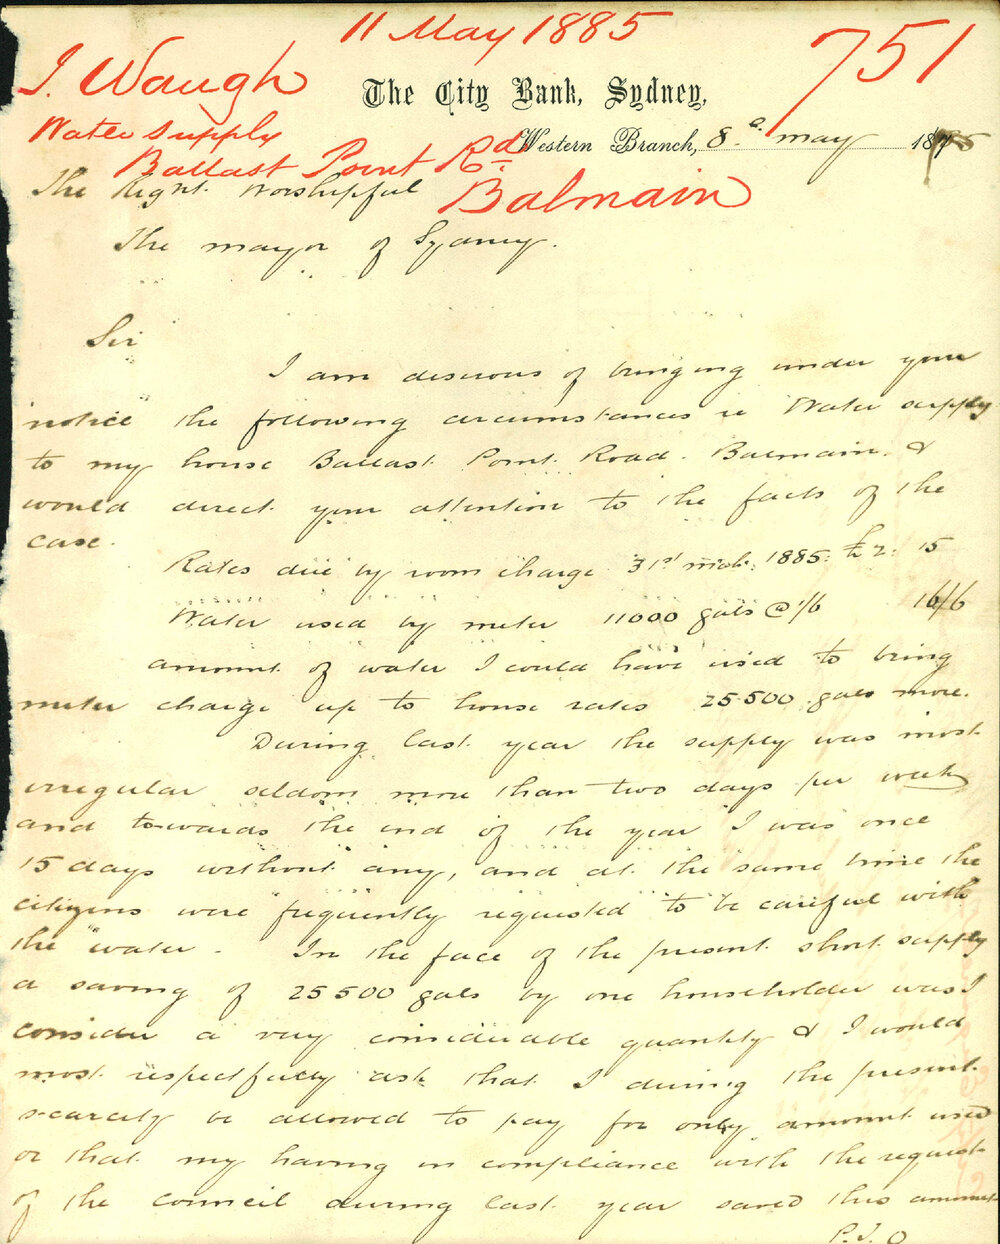 11 May 1885
751
J. Waugh
The City Bank, Sydney,
Water supply
Western Branch, 8th May 1885
Ballast Point Rd
Balmain
The Right Worshipful
The Mayor of Sydney.
Sir
I am desirous of bringing under your
notice the following circumstances re Water supply
to my house Ballast Point Road. Balmain. &
would direct your attention to the facts of the
case.
Rates due by room charge 31st Mch. 1885. £2. 15
Water used by meter 11000 gals @ 1/6 16/6
amount of water I could have used to bring
meter charge up to house rates 25500 gals more.
During last year the supply was most
irregular seldom more than two days per week
and towards the end of the year I was once
15 days without any, and at the same time the
citizens were frequently requested to be careful with
the water. In the face of the present short supply
a saving of 25500 gals by one householder was I
consider a very considerable quantity & I would
most respectfully ask that I during the present
scarcity be allowed to pay for only amount used
or that my having in compliance with the request
of the Council during last year saved this amount
P.T.O